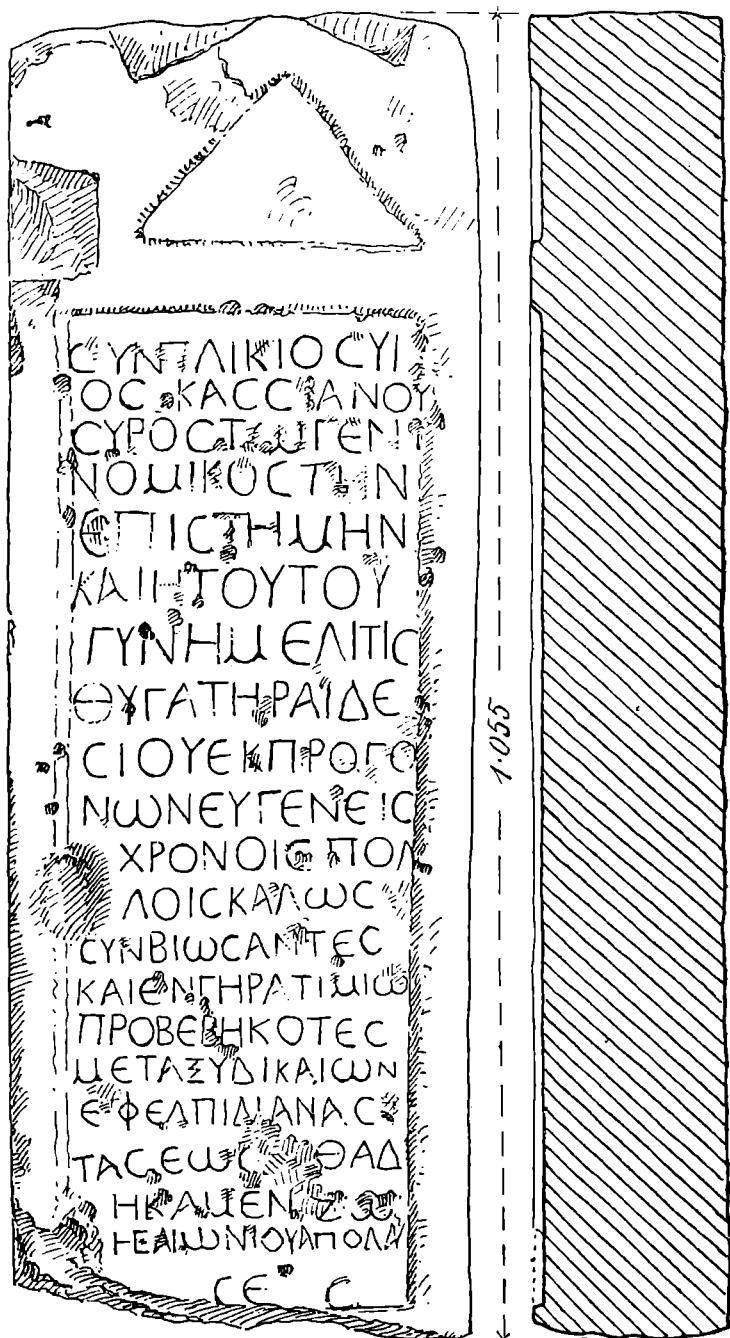 CΥΝΠΛΙΚΙΟCΥΙ
ΟC ΚΑCCΙΑΝΟΥ
CΥΡΟCΤΩΓΕΝΙ
ΝΟΜΙΚΟCΤΗΝ
ΕΠΙCΤΗΜΗΝ
ΚΑΙΗΤΟΥΤΟΥ
ΓΥΝΗΜΕΛΙΤΙC
ΘΥΓΑΤΗΡΑΙΔΕ
CΙΟΥΕΚΠΡΟΓΟ
ΝΩΝΕΥΓΕΝΕΙC
ΧΡΟΝΟΙCΠΟΛ
ΛΟΙCΚΑΛΩC
CΥΝΒΙΩCΑΝΤΕC
ΚΑΙΕΝΓΗΡΑΤΙΜΙΩ
ΠΡΟΒΕΒΗΚΟΤΕC
ΜΕΤΑΞΥΔΙΚΑΙΩΝ
ΕΦΕΛΠΙΔΙΑΝΑC
ΤΑCΕΩC ΘΑΔ
ΗΚΑΜΕΝ ΖΩ
ΗCΑΙΩΝΙΟΥΑΠΟΛΑΥ
CΕ C
1.055